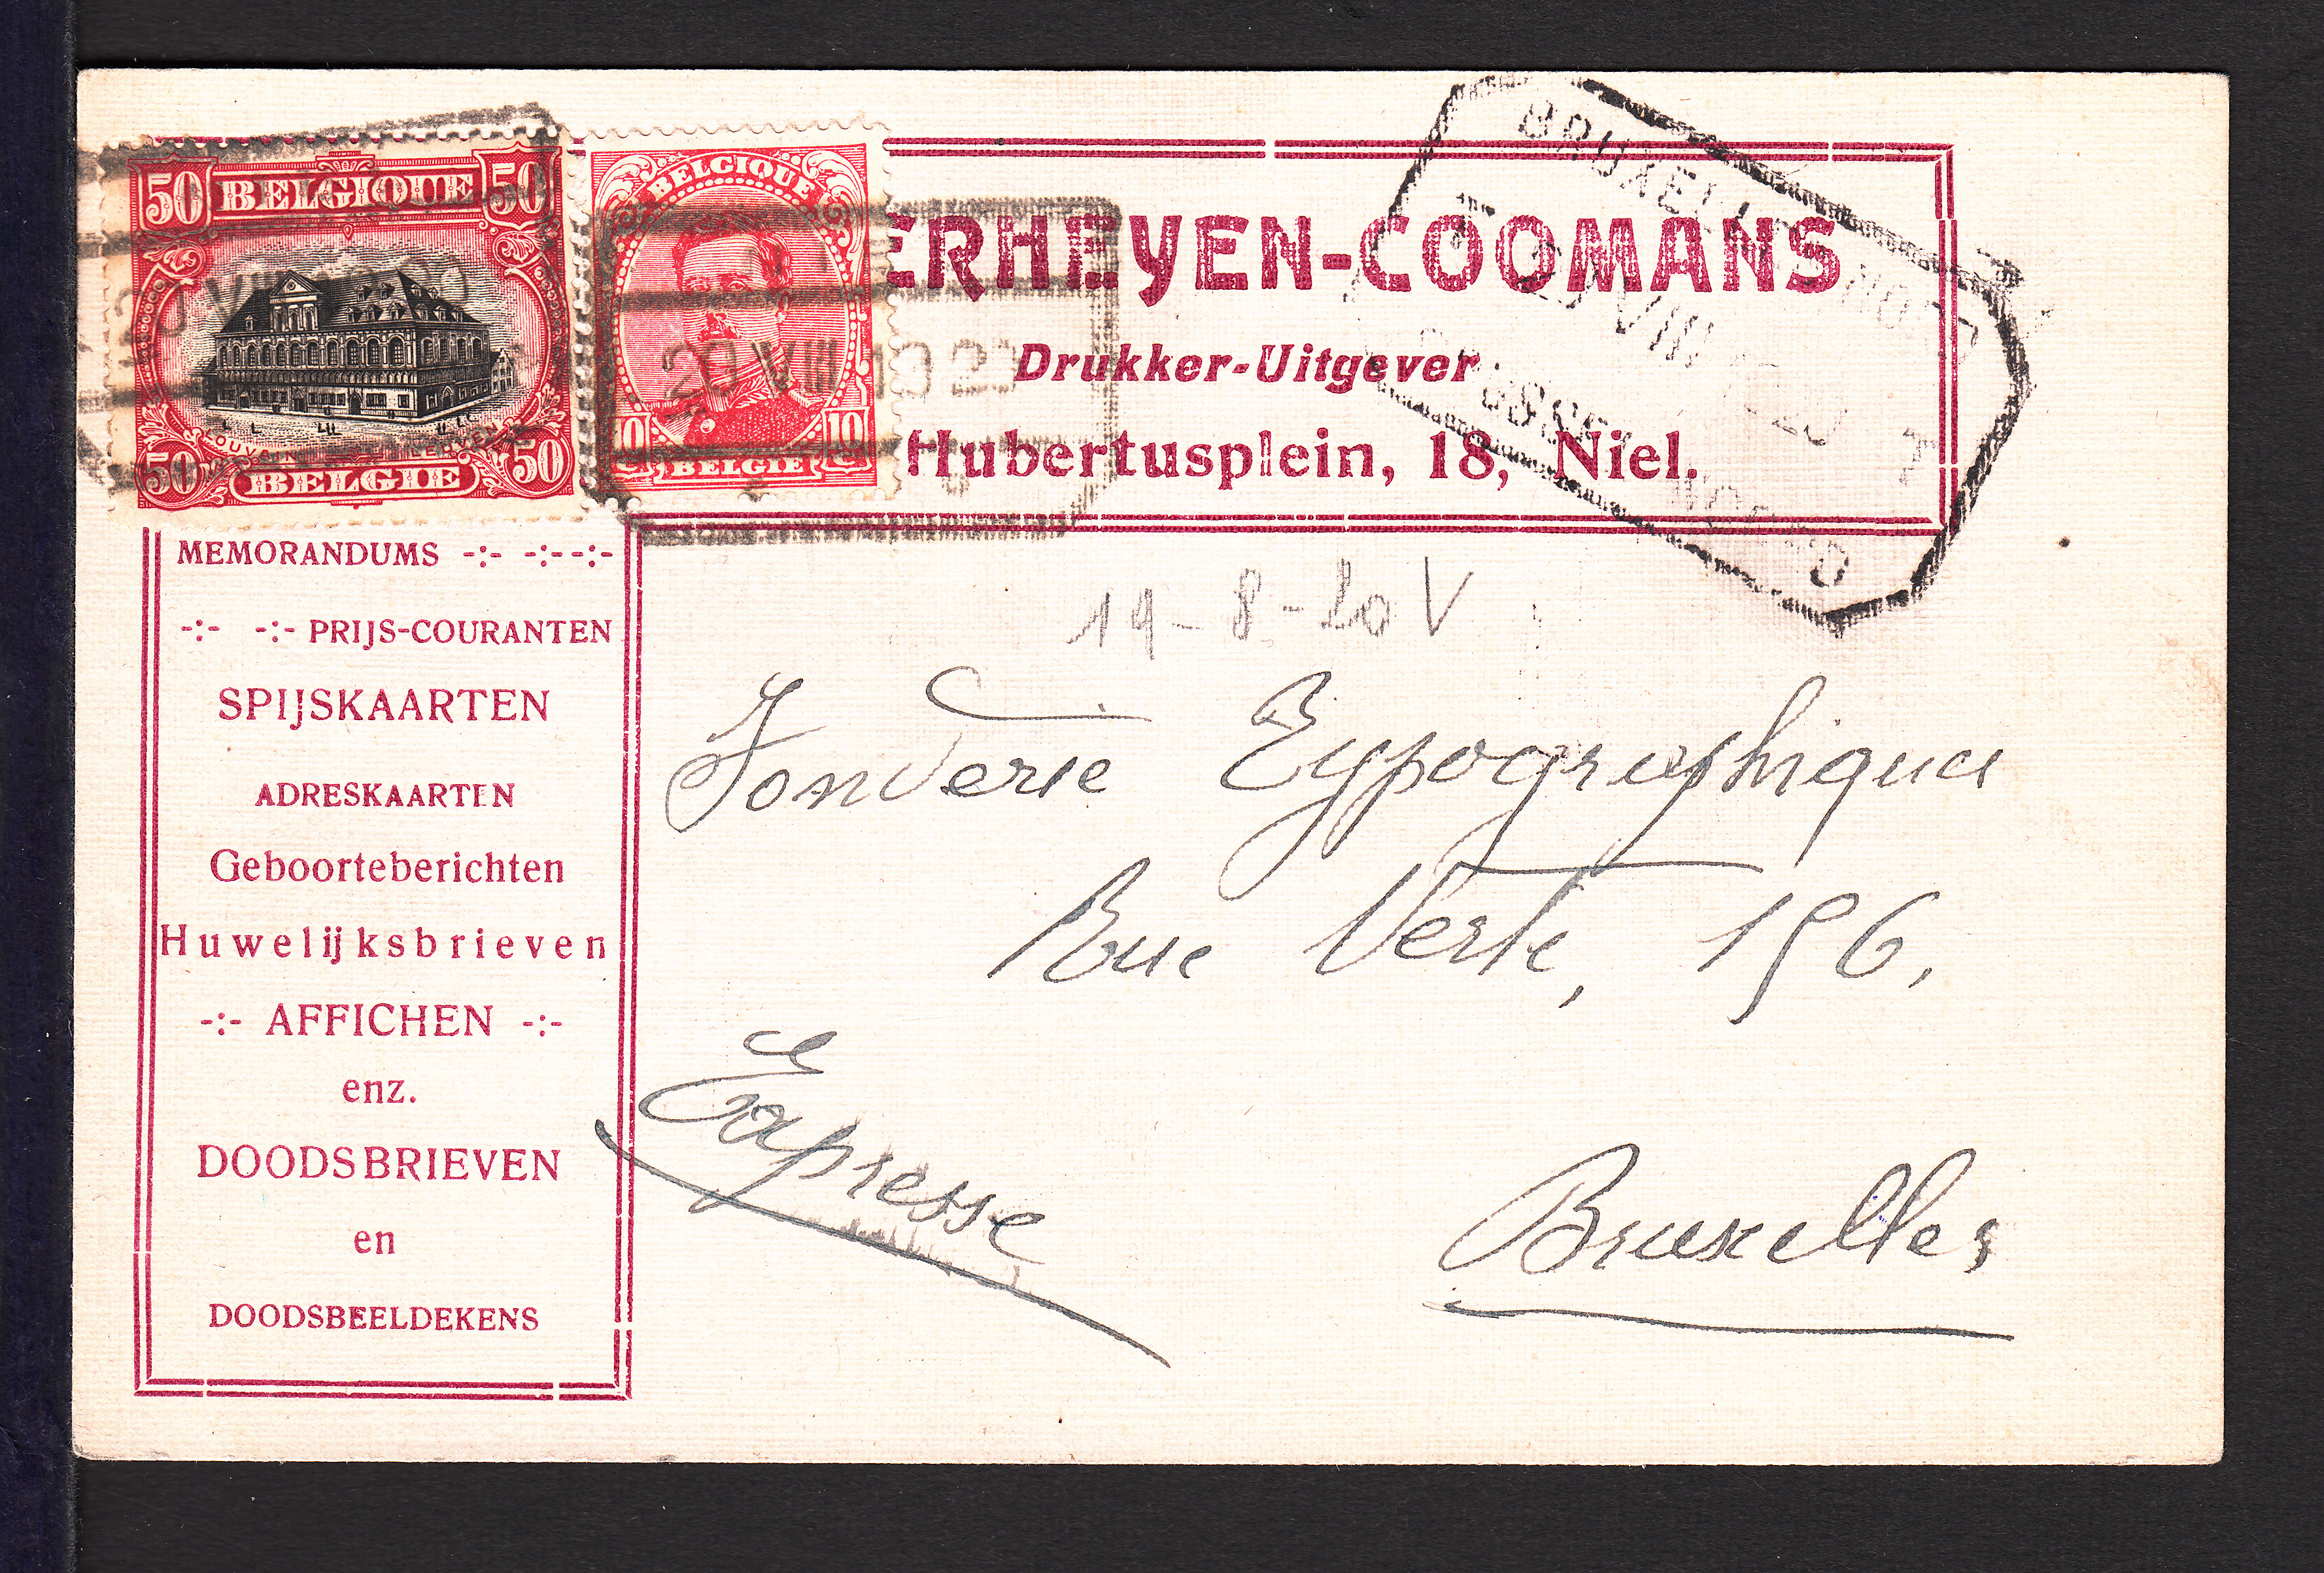 50 BELGIQUE 50
LOUVAIN LEUVEN
50 BELGIE 50
BELGIQUE
10 10
BELGIE
20 VIII 1920
20 VIII 1920
BRUXELLES NORD
20 VIII 1920
BRUSSEL NOORD
ERHEYEN-COOMANS
Drukker-Uitgever
Hubertusplein, 18, Niel.
MEMORANDUMS -:- -:--:-
-:- -:- PRIJS-COURANTEN
SPIJSKAARTEN
ADRESKAARTEN
Geboorteberichten
Huwelijksbrieven
-:- AFFICHEN -:-
enz.
DOODSBRIEVEN
en
DOODSBEELDEKENS
19-8-20 V
Fonderie Typographique
Rue Verte, 196,
Expresse
Bruxelles